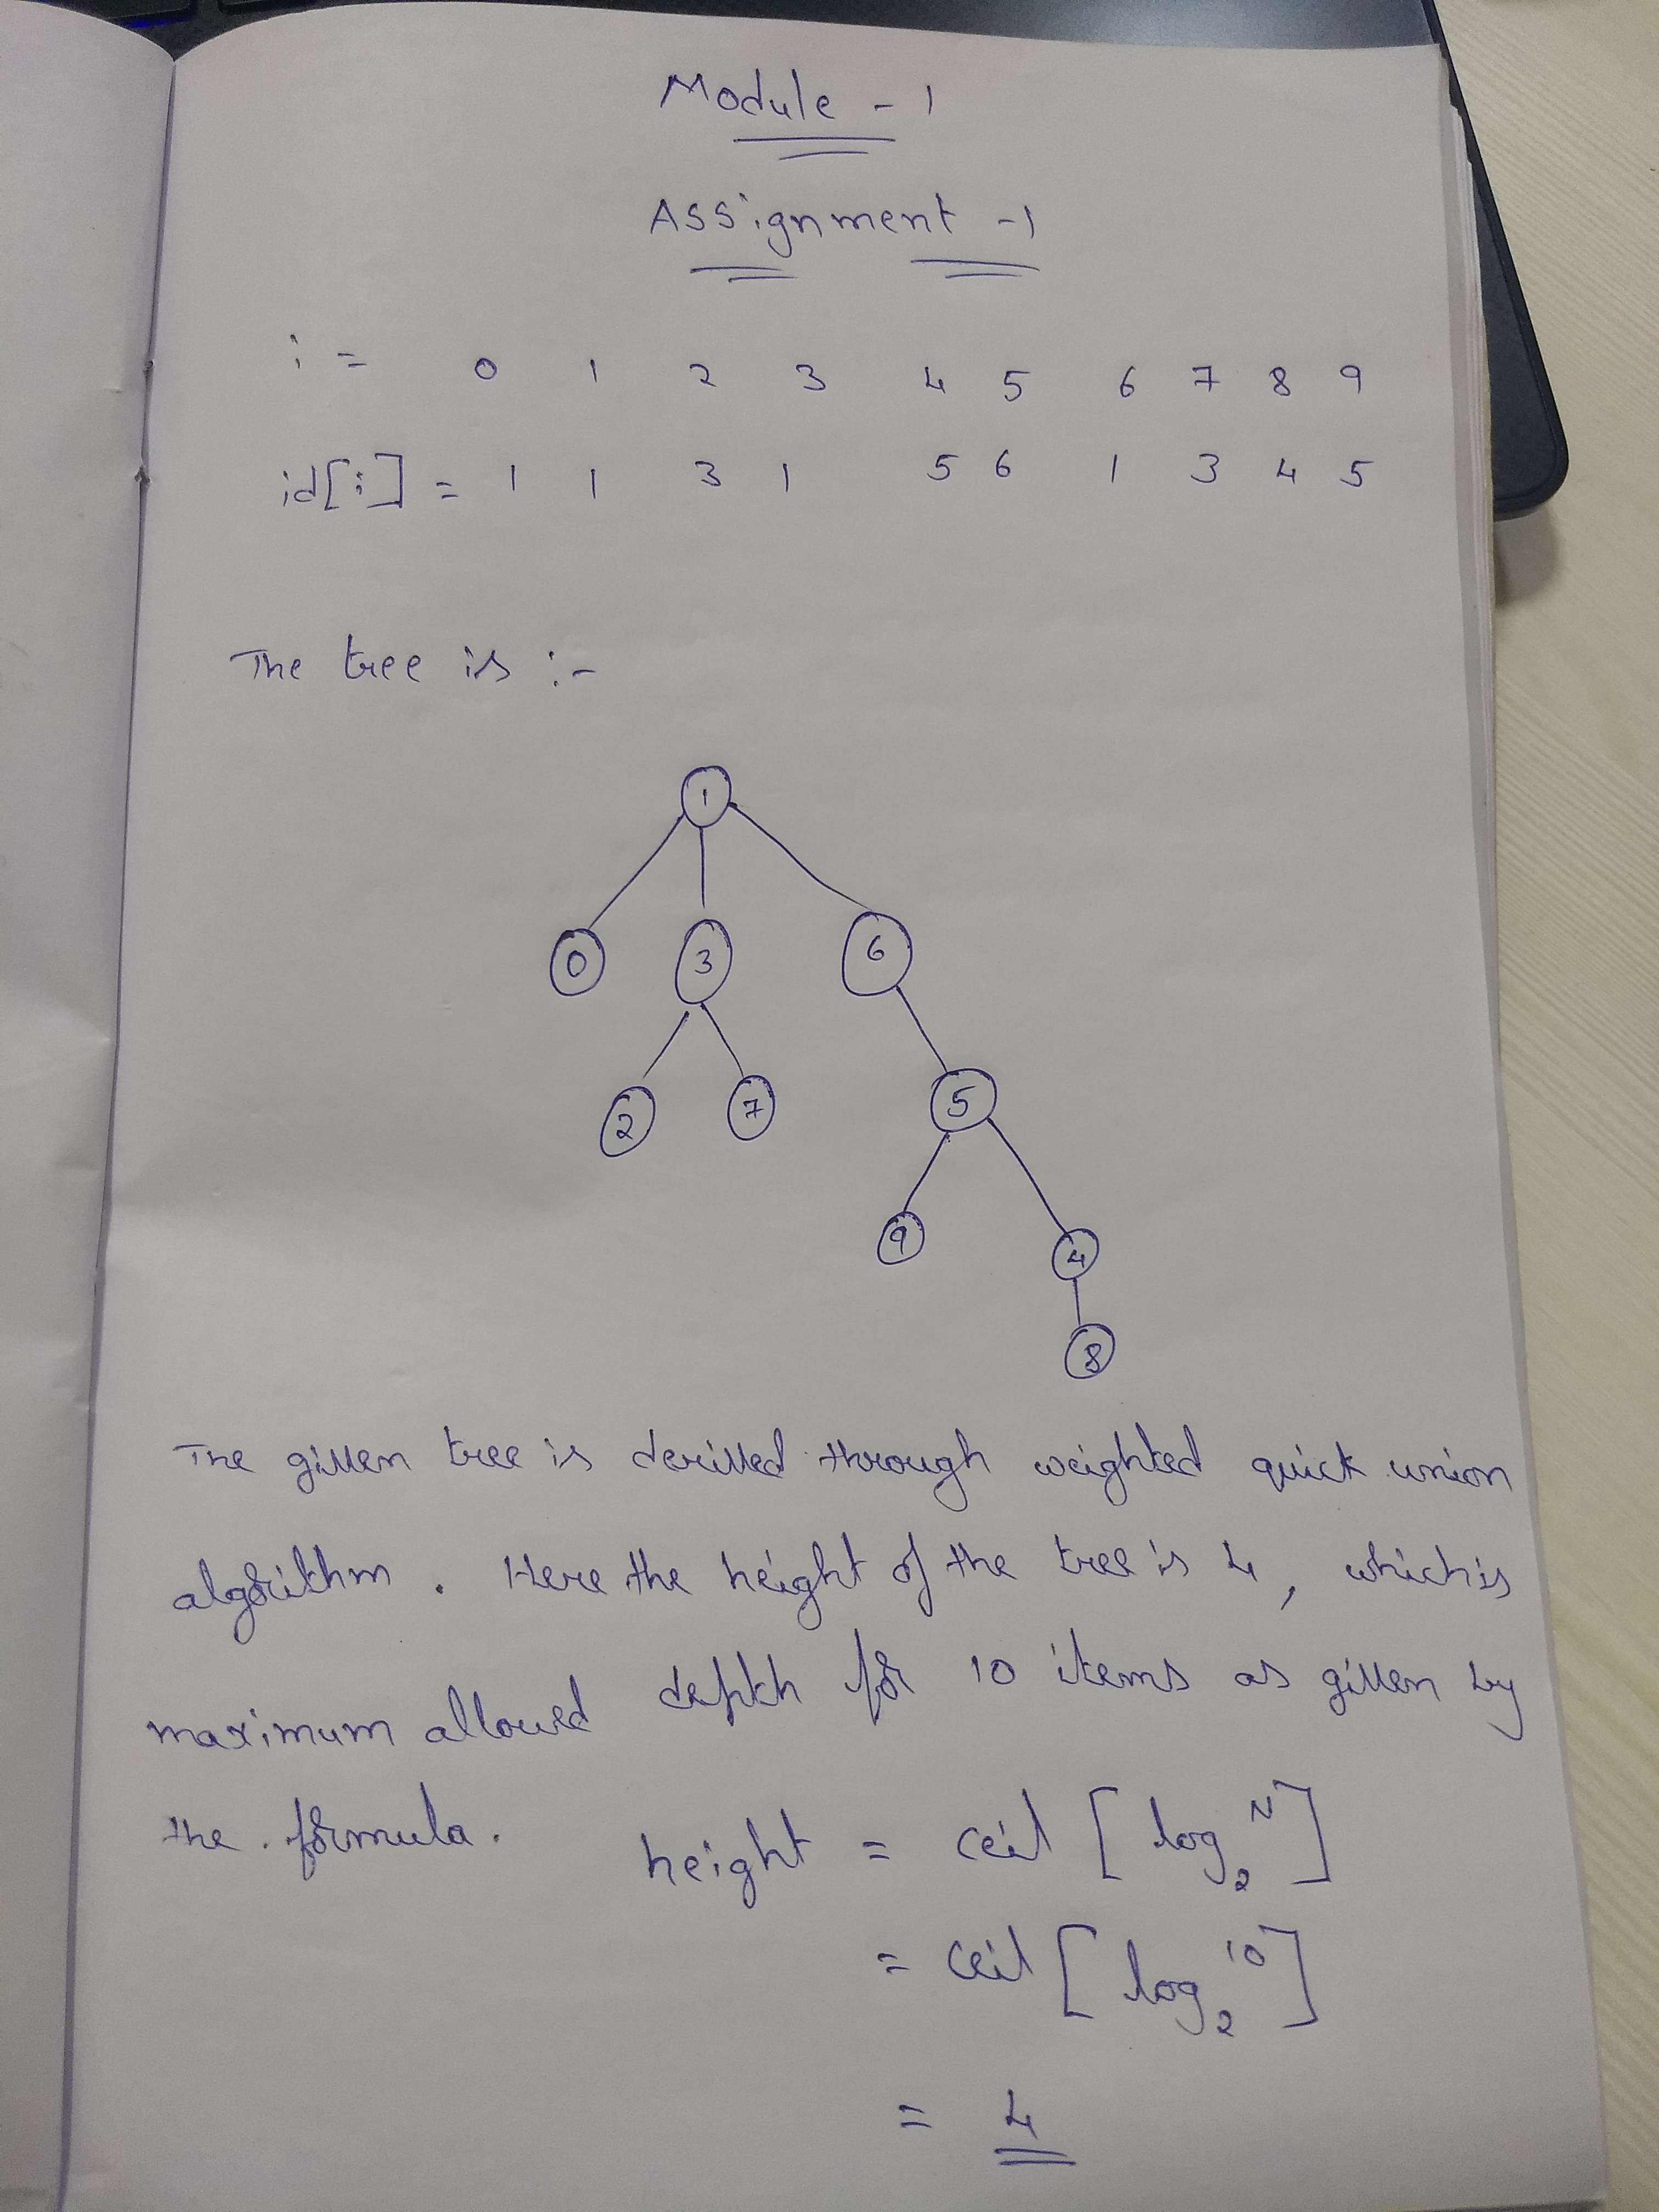 Module - 1
Assignment -1
i = 0 1 2 3 4 5 6 7 8 9
id[i] = 1 1 3 1 5 6 1 3 4 5
The tree is :-
1
0 3 6
2 7 5
9 4
8
The given tree is derived through weighted quick union
algorithm. Here the height of the tree is 4, which is
maximum allowed depth for 10 items as given by
the formula. height = ceil [log₂ᴺ]
= ceil [log₂¹⁰]
= 4